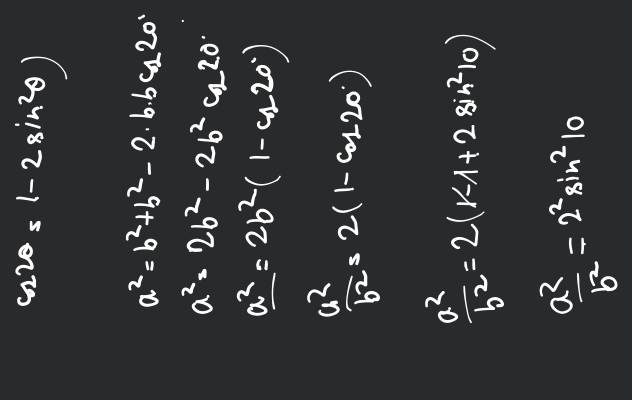 cos2θ = 1 - 2 sin²θ)
a² = b² + b² - 2·b·b cos 20°
a² = 2b² - 2b² cos 20°
a² = 2b² (1 - cos 20°)
a²/b² = 2(1 - cos 20°)
a²/b² = 2(1 - 1 + 2 sin² 10)
a²/b² = 2² sin² 10